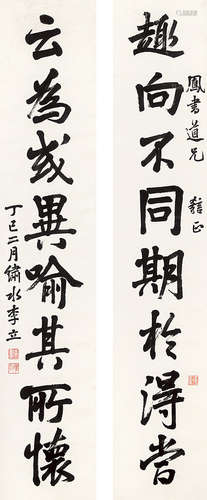 趣向不同期於得當
鳳書道兄 雅正
云為或異喻其所懷
丁巳二月肅水李立